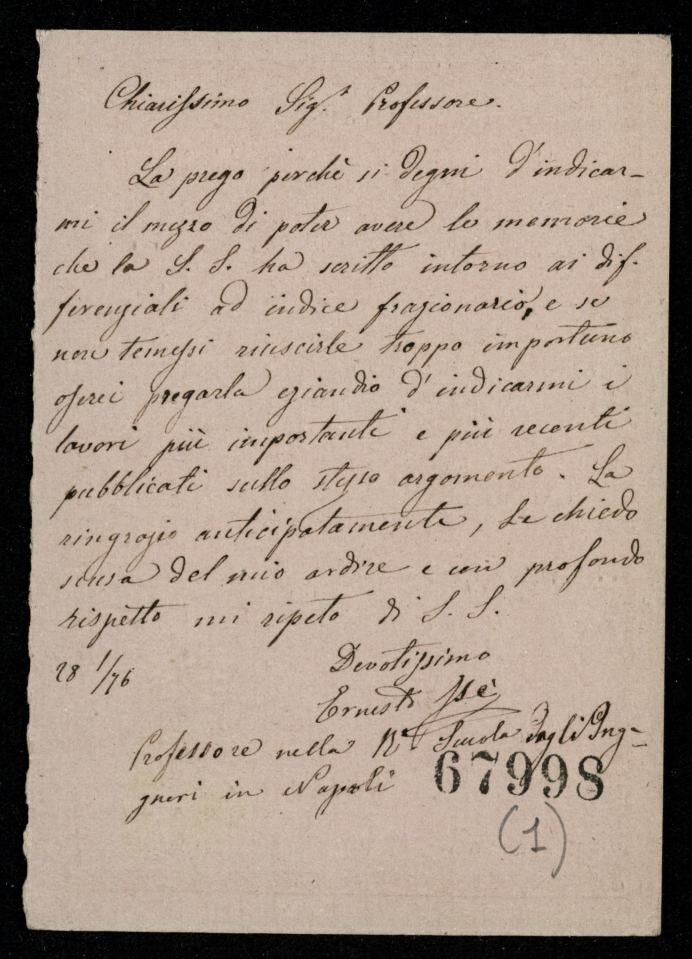 Chiarissimo Sig.r Professore.
La prego perchè si degni d'indicar-
mi il mezzo di poter avere le memorie
che la S. S. ha scritto intorno ai dif-
ferenziali ad indice frazionario, e se
non temessi riuscirle troppo importuno
oserei pregarla eziandio d'indicarmi i
lavori più importanti e più recenti
pubblicati sullo stesso argomento. La
ringrazio anticipatamente, Le chiedo
scusa del mio ardire e con profondo
rispetto mi ripeto di S. S.
28 1/76 Devotissimo
Ernesto Isè
Professore nella Ra Scuola degli Ing-
gneri in Napoli
67998
(1)